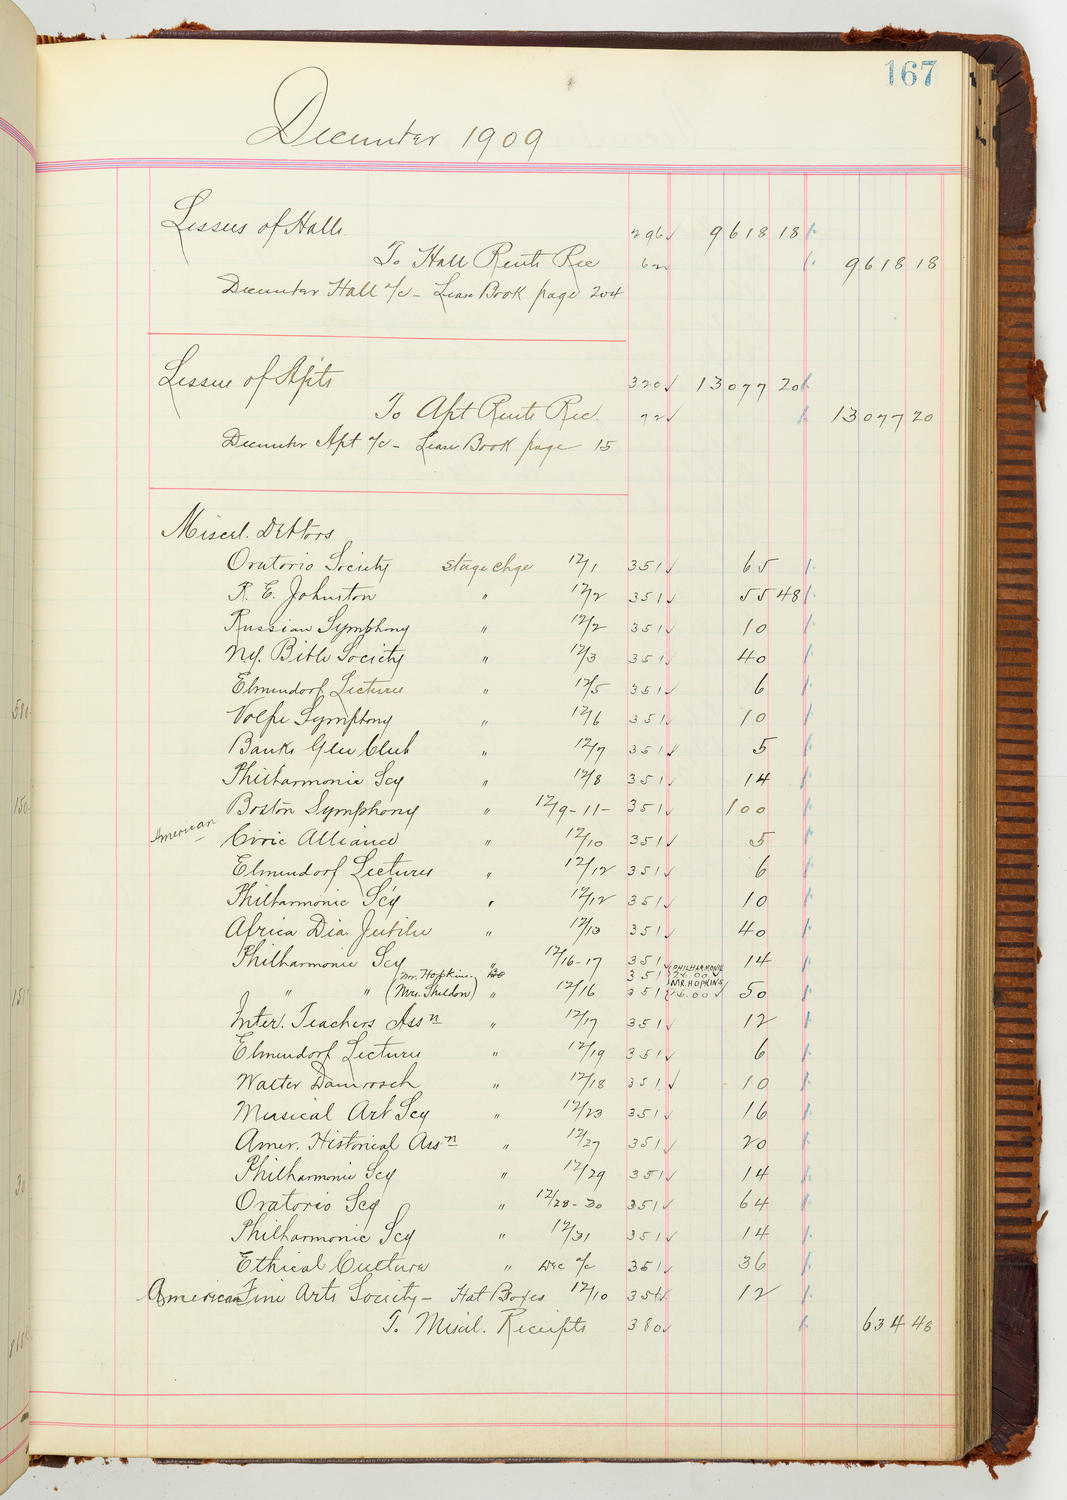 167
December 1909
Lessees of Halls 296✓ 9618 18
To Hall Rents Rec 62 9618 18
December Hall a/c - Lease Book page 204
Lessees of Apts 320✓ 13077 20
To Apt Rents Rec. 72✓ 13077 20
December Apt a/c - Lease Book page 15
Miscel. Debtors
Oratorio Society stage chge 12/1 351✓ 65
R. E. Johnston " 12/2 351✓ 55 48
Russian Symphony " 12/2 351✓ 10
NY. Bible Society " 12/3 351✓ 40
Elmendorf Lectures " 12/5 351✓ 6
Volpe Symphony " 12/6 351✓ 10
Banks Glee Club " 12/7 351✓ 5
Philharmonic Scy " 12/8 351✓ 14
Boston Symphony " 12/9-11- 351✓ 100
American Civic Alliance " 12/10 351✓ 5
Elmendorf Lectures " 12/12 351✓ 6
Philharmonic Scy " 12/12 351✓ 10
Africa Dia. Jubilee " 12/13 351✓ 40
Philharmonic Scy " 12/16-17 351✓ 14
(Mr. Hopkins- 351 PHILHARMONIC 26.00✓
" " Mrs. Sheldon) " 12/16 351 MR. HOPKINS 26.00✓ 50
Inter. Teachers Assn " 12/17 351✓ 12
Elmendorf Lectures " 12/19 351✓ 6
Walter Damrosch " 12/18 351✓ 10
Musical Art Scy " 12/23 351✓ 16
Amer. Historical Assn " 12/27 351✓ 20
Philharmonic Scy " 12/29 351✓ 14
Oratorio Scy " 12/28-30 351✓ 64
Philharmonic Scy " 12/31 351✓ 14
Ethical Culture " Dec a/c 351✓ 36
American Fine Arts Society - Hat Boxes 12/10 351✓ 12
To Miscel. Receipts 380✓ 634 48